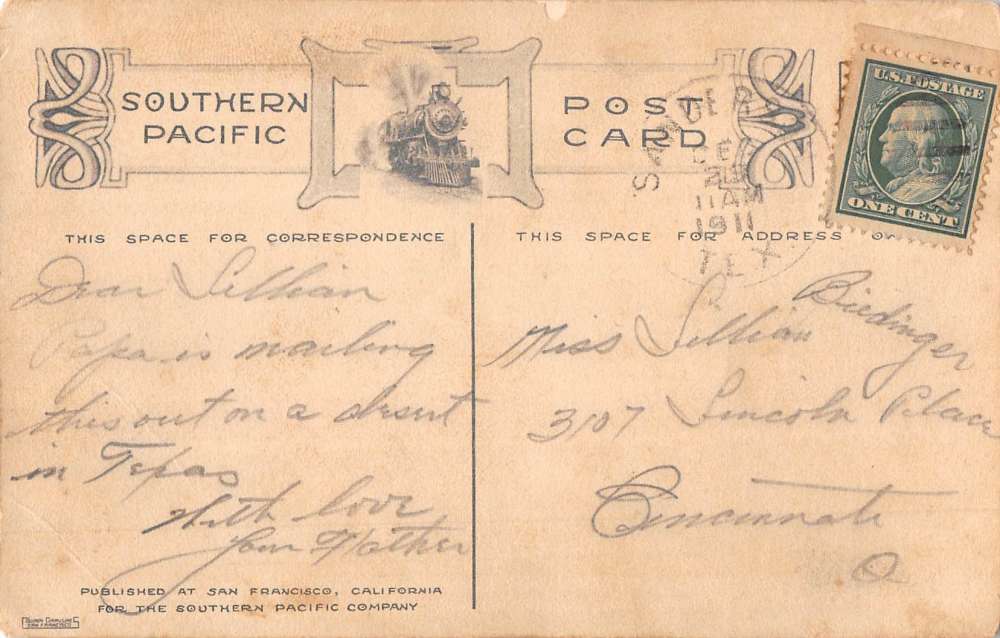 SOUTHERN
PACIFIC
POST
CARD
U.S. POSTAGE
ONE CENT
11 AM
1911
TEX
THIS SPACE FOR CORRESPONDENCE
THIS SPACE FOR ADDRESS
Dear Lillian
Papa is mailing
this out on a desert
in Texas
With love
Your Mother
Miss Lillian Biedinger
3107 Lincoln Place
Cincinnati
O
PUBLISHED AT SAN FRANCISCO, CALIFORNIA
FOR THE SOUTHERN PACIFIC COMPANY